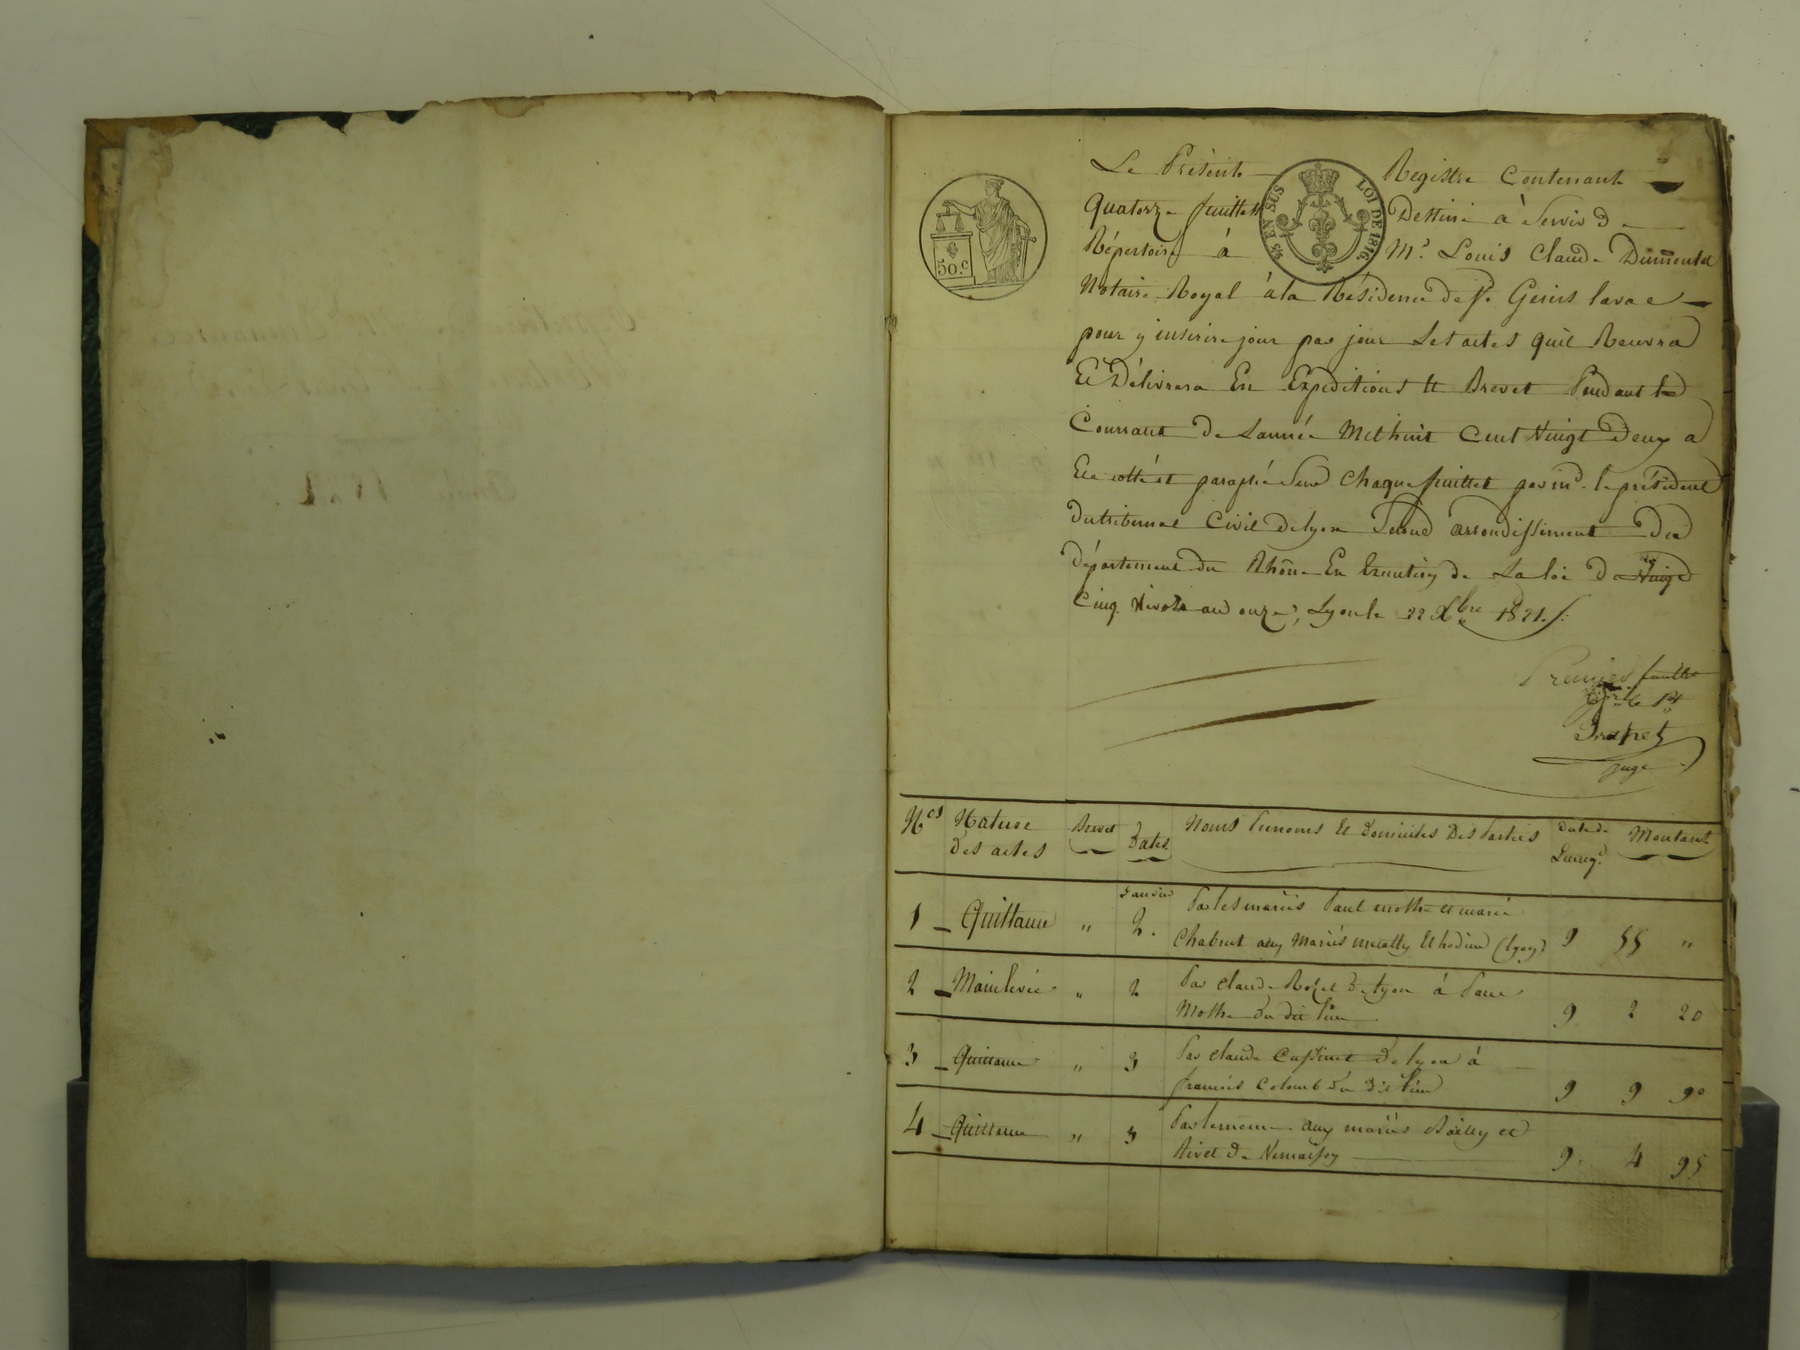 Le Présent Registre Contenant
Quatorze feuillets Destiné à Servir de
Répertoire à Me. Louis Claude Dumontet
Notaire Royal à la Résidence de St. Genis laval
pour y inscrire jour par jour Les actes quil Recevra
Et Délivrera En Expéditions et Brevet Pendant le
Courrant de Lannée Mil huit Cent Vingt Deux a
Eté cotté et paraphé Sur Chaque feuillet par mr. le président
du tribunal Civil de lyon Second arrondissement du
département du Rhône En Exécution de La loi de Vingt
Cinq Nivose an onze, Lyon le 22 Xbre 1821.
50.c
EN SUS LOI DE 1816
Premier feuillet
pr. le Pt
juge
Nos Nature des actes Brevet Dates Noms Prénoms Et Domiciles Des Parties Date de Lenregt. Montant
Janvier
1 Quittance " 2. Par les mariés Paul mothe et marie
aux Mariés (lyon) 9 55 "
2 Mainlevée " 2 Par Claude de lyon à Paul
Mothe du dit lieu 9 2 20
3 Quittance " 3 Par Claude de lyon à
francois Colomb du dit lieu 9 9 90
4 Quittance " 3 Par le même aux mariés et
Rivet de 9 4 95